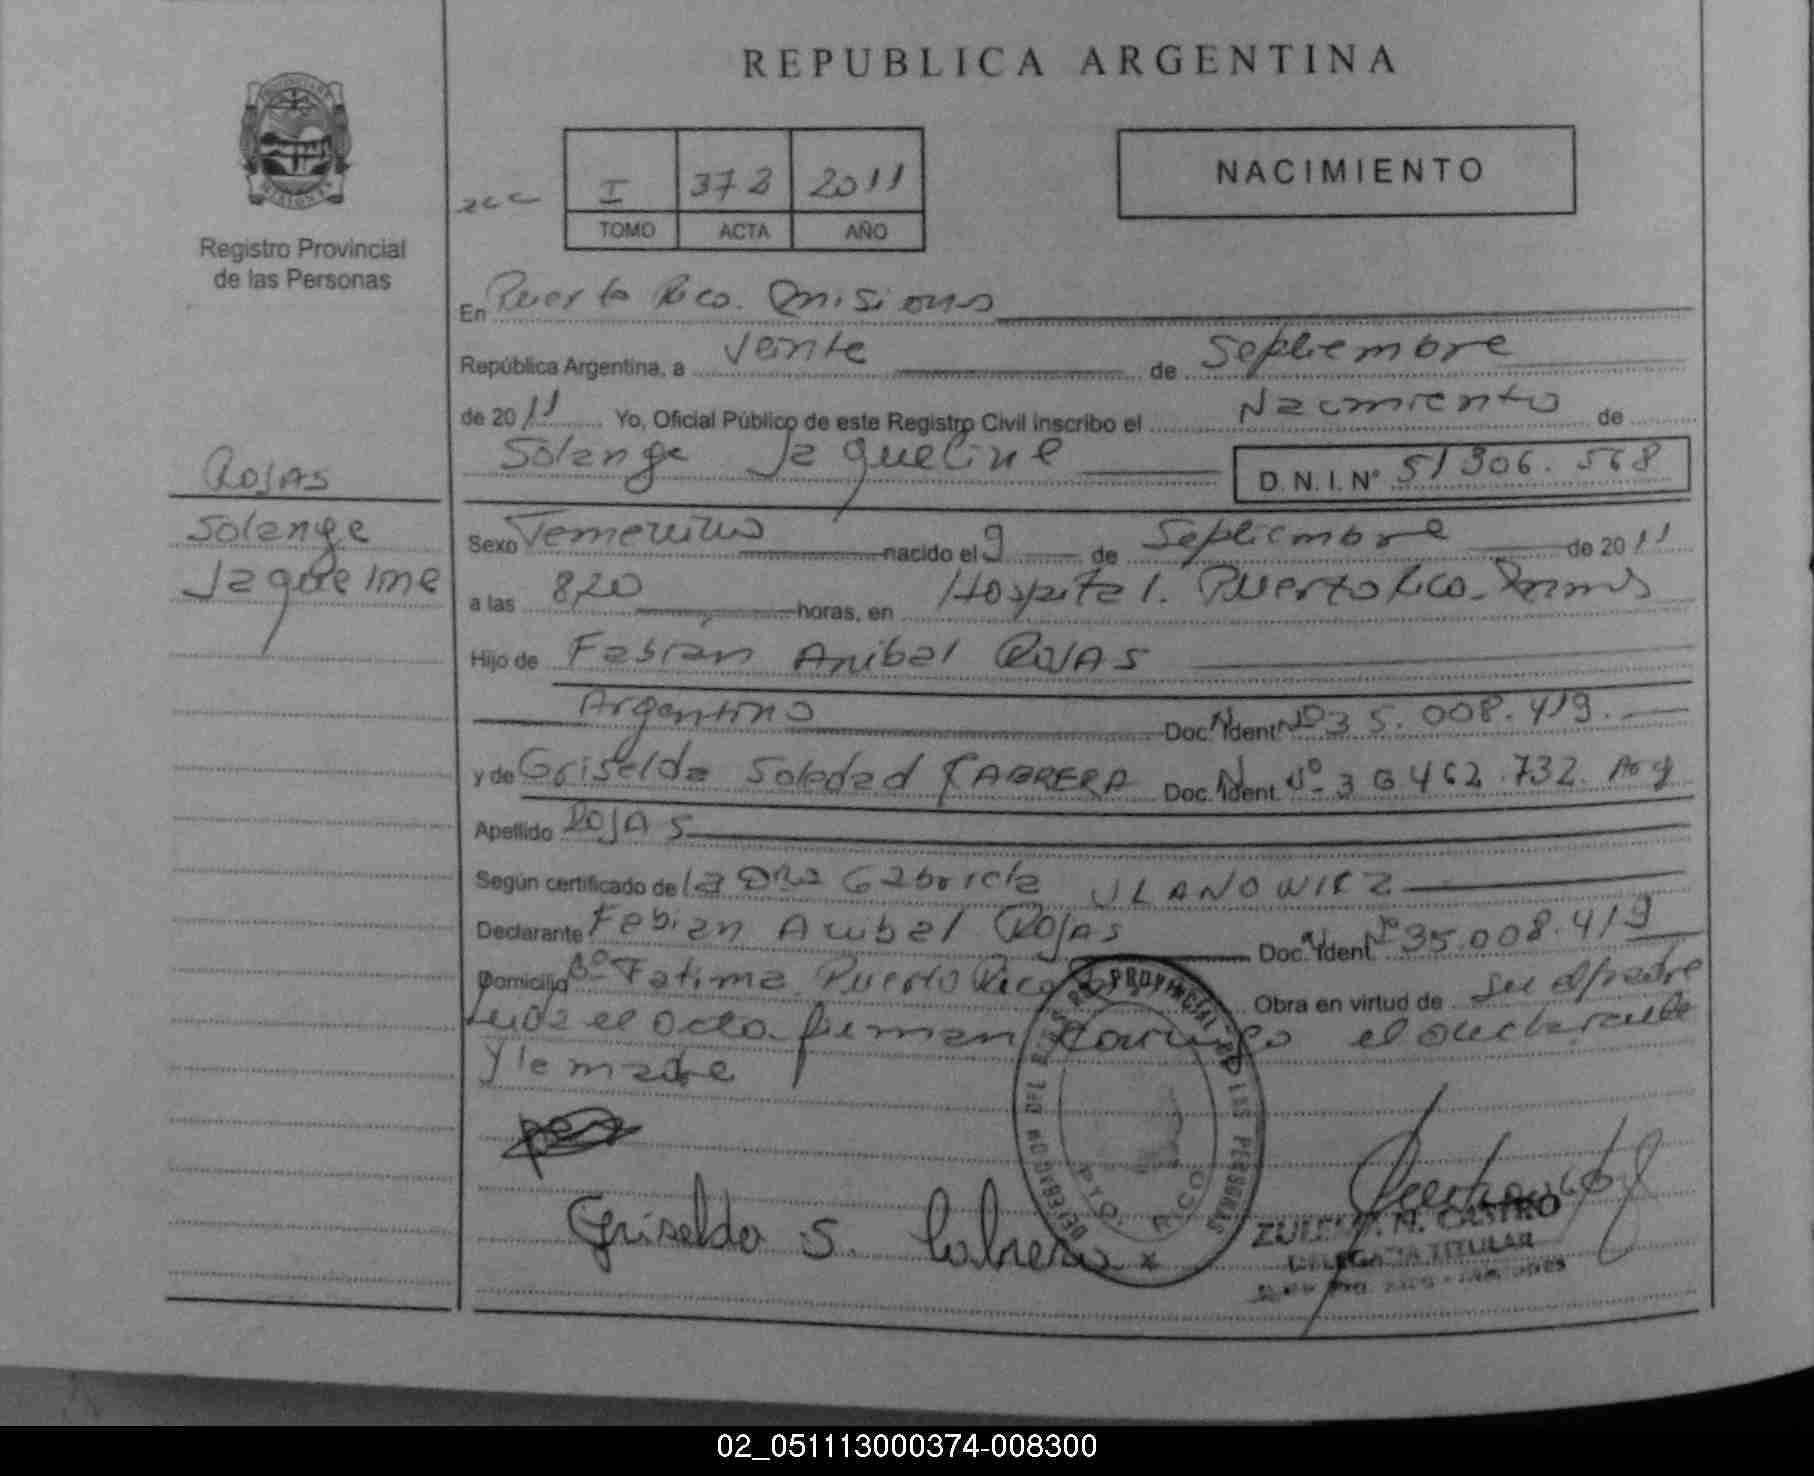 REPUBLICA ARGENTINA
NACIMIENTO
I 373 2011
TOMO ACTA AÑO
Registro Provincial
de las Personas
En Puerto Rico. Misiones
República Argentina, a Veinte de Septiembre
de 2011 Yo, Oficial Público de este Registro Civil inscribo el Nacimiento de
Solange Jaqueline D. N. I. N° 51306.568
ROJAS
Solange
Jaqueline
Sexo Femenino nacido el 9 de Septiembre de 2011
a las 8,20 horas, en Hospital. Puerto Rico.
Hijo de Fabian Anibal ROJAS
Argentino Doc. Ident. N° 35.008.419.
y de Griselda Soledad CABRERA Doc. Ident. N° 36 462.732. Arg
Apellido ROJAS
Según certificado de la Dra Gabriela ULANOWICZ
Declarante Fabian Anibal Rojas Doc. Ident. N° 35.008.419
Domicilio B° Fatima Puerto Rico Obra en virtud de ser el padre
Leida el acta firman conmigo el declarante
y la madre
Griselda S. Cabrera
PROVINCIAL DE LAS PERSONAS
PTO. RICO
ZULEMA N. CASTRO
DELEGADA TITULAR
02_051113000374-008300